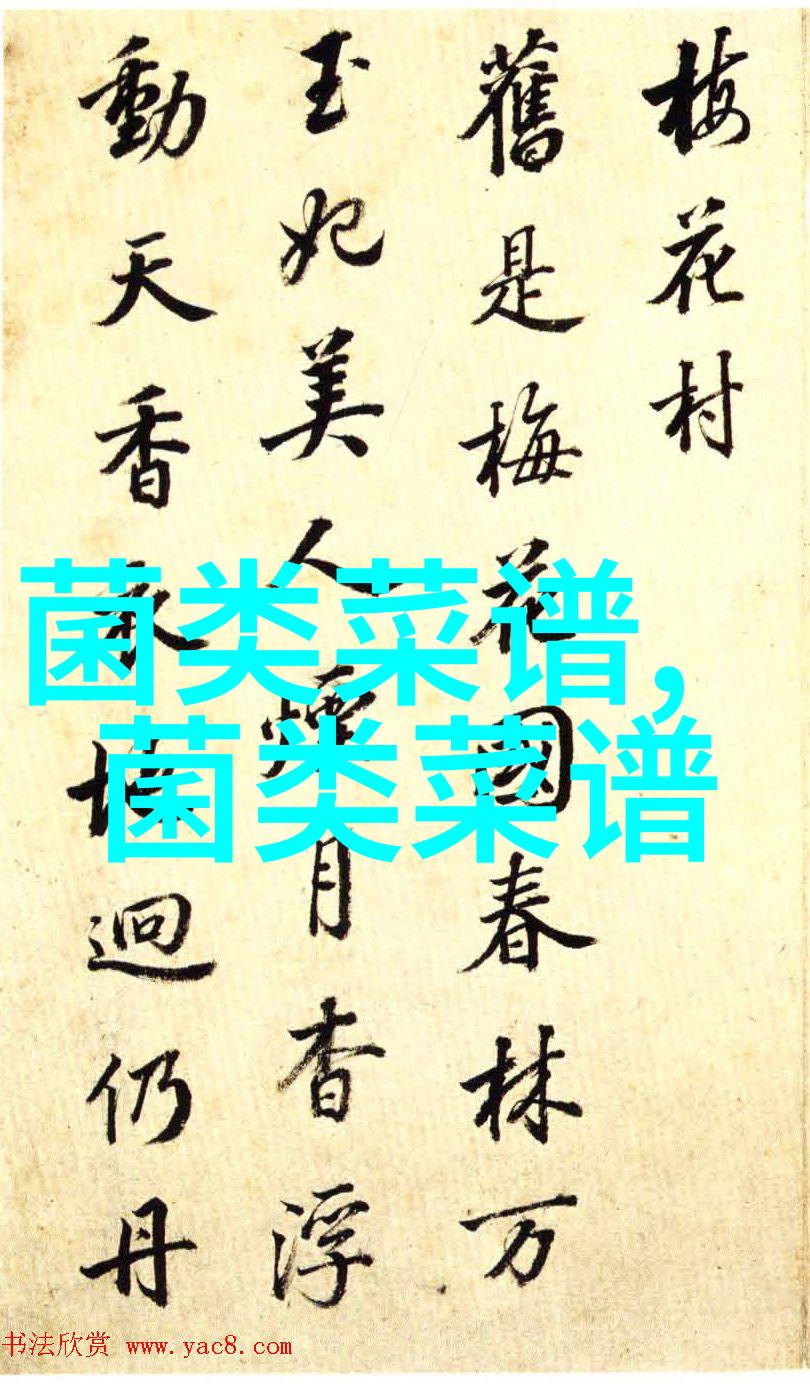 梅花村
舊是梅花國春林万
玉妃美人煙月杳浮
動天香衣迥仍丹
菌类菜谱，
菌类菜谱
书法欣赏 www.yac8.com